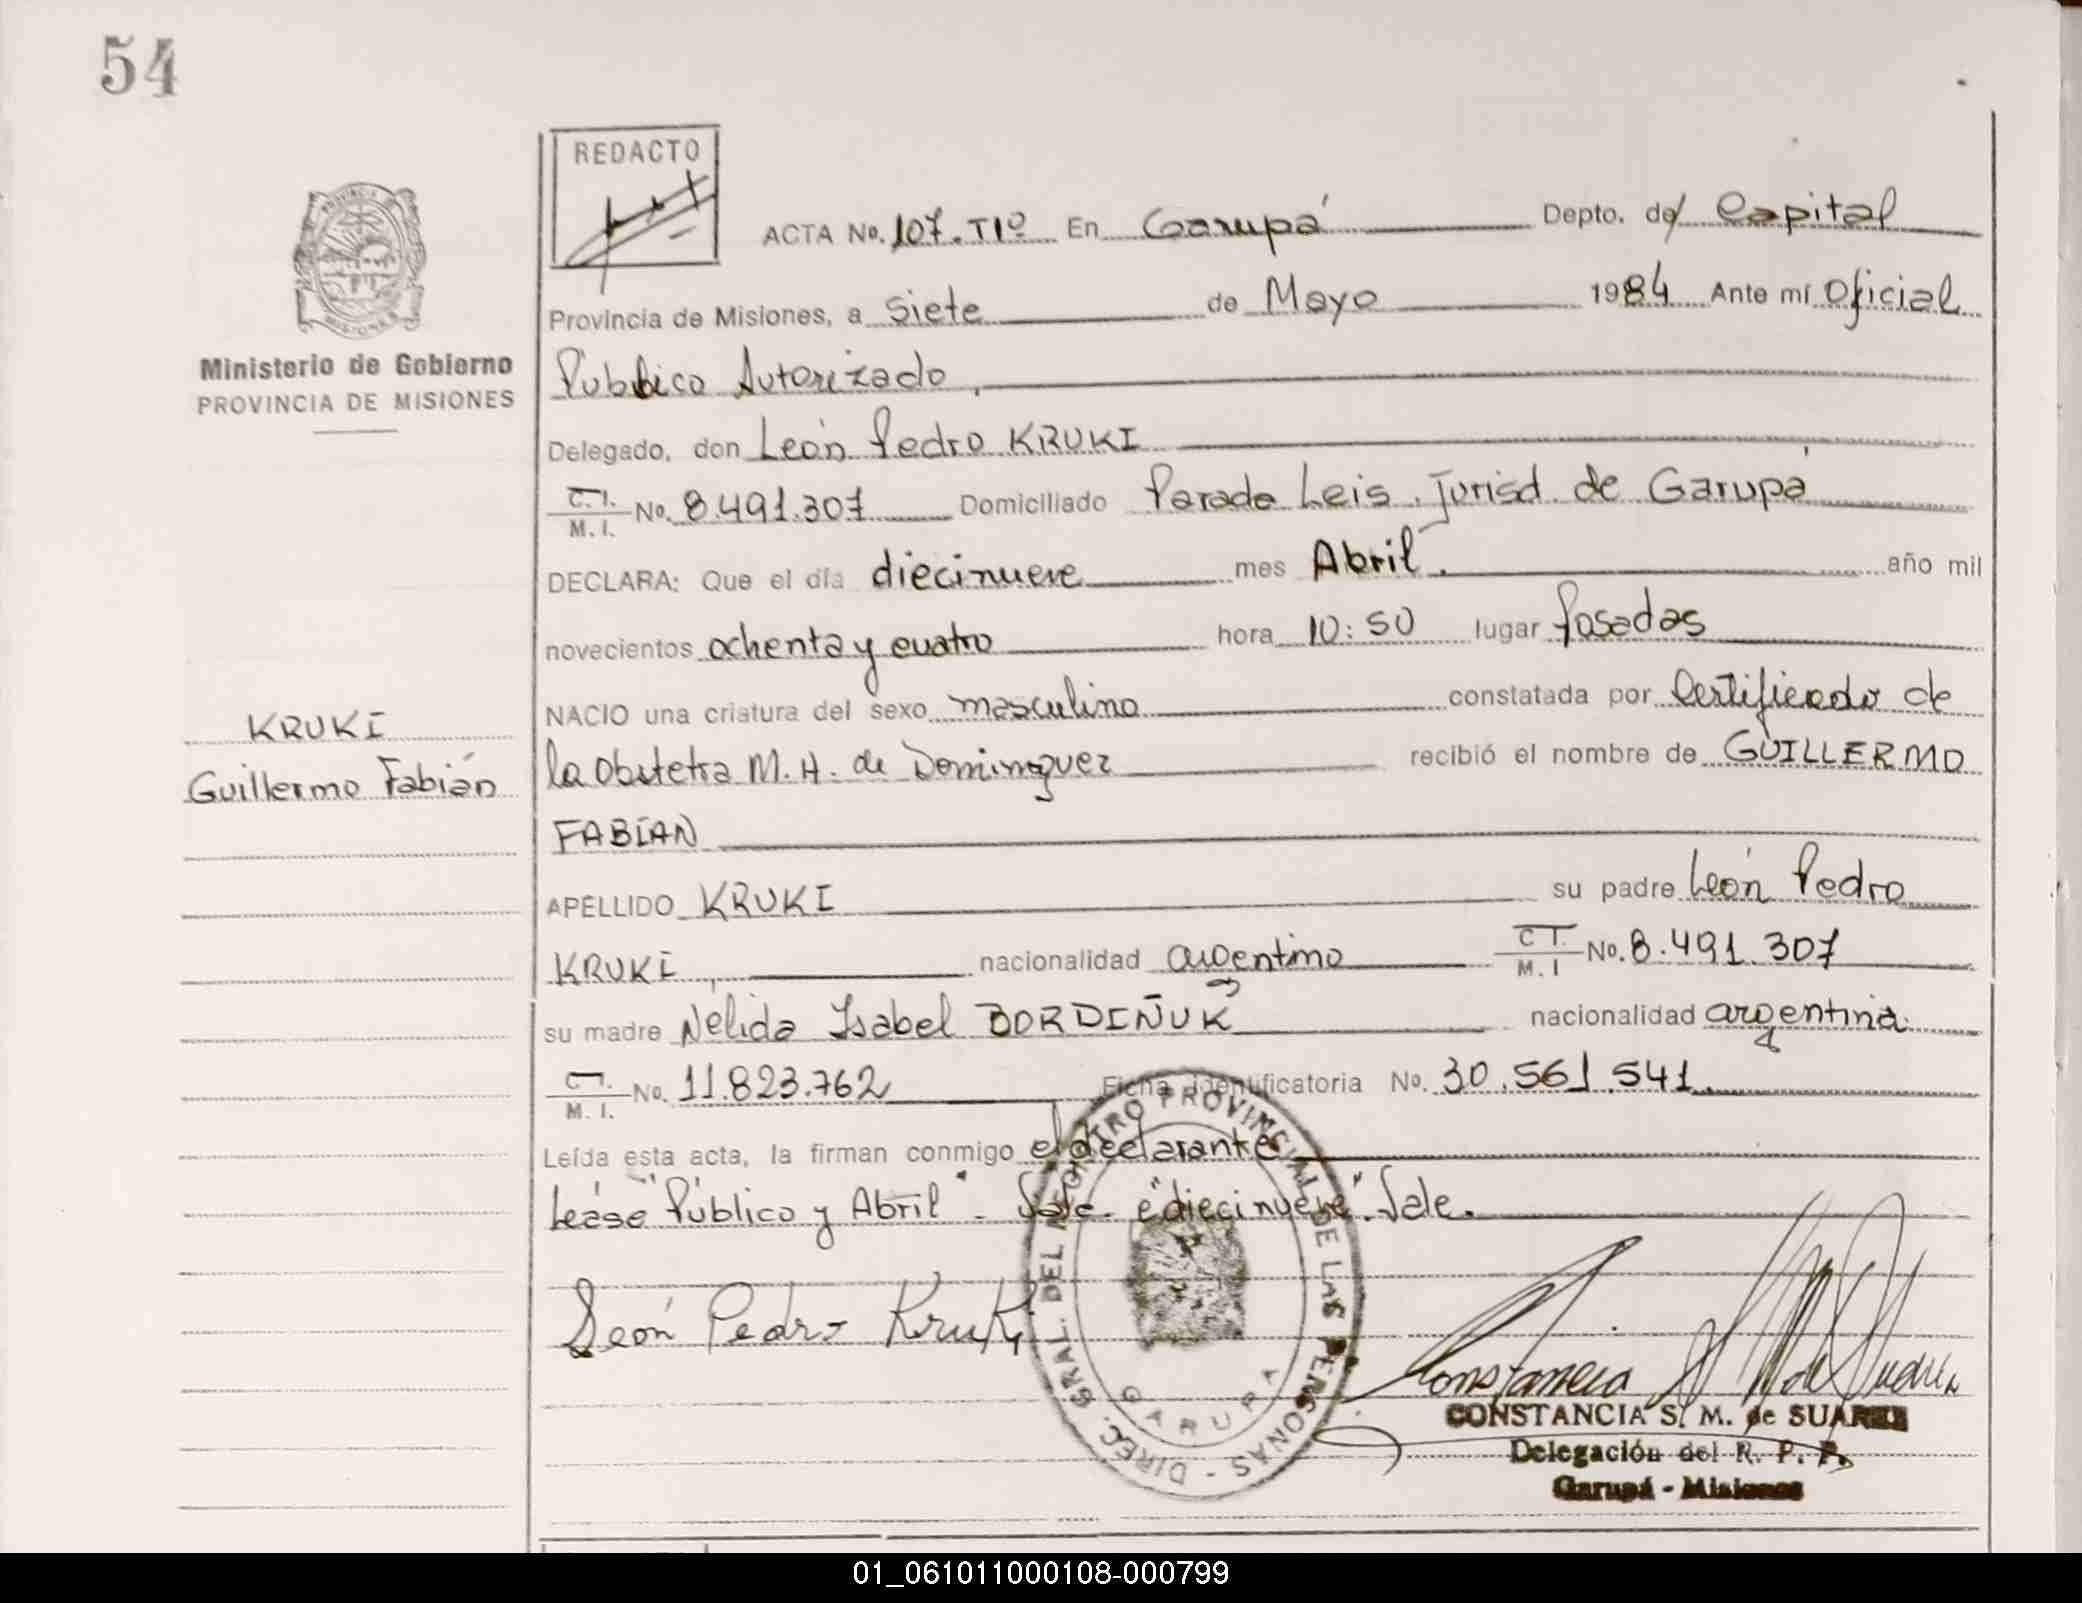 54
REDACTO
ACTA No. 107. T1º En Garupá Depto. de Capital
Provincia de Misiones, a siete de Mayo 1984 Ante mí Oficial
Ministerio de Gobierno
PROVINCIA DE MISIONES
Público Autorizado,
Delegado, don León Pedro KRUKI
C.I. M.I. No. 8.491.307 Domiciliado Parada Leis. Jurisd. de Garupá
DECLARA: Que el día diecinueve mes Abril. año mil
novecientos ochenta y cuatro hora 10:50 lugar Posadas
NACIO una criatura del sexo masculino constatada por Certificado de
la Obstetra M. H. de Dominguez recibió el nombre de GUILLERMO
FABIAN
KRUKI
Guillermo Fabián
APELLIDO KRUKI su padre León Pedro
KRUKI, nacionalidad argentino C.I. M.I No. 8.491.307
su madre Nelida Isabel BORDIÑUK nacionalidad argentina.
C.I. M.I. No. 11.823.762 Ficha Identificatoria No. 30.561.541.
Leída esta acta, la firman conmigo el declarante
Leáse "Público y Abril". Vale. e"diecinueve". Vale.
León Pedro Kruki
DIREC. GRAL. DEL REGISTRO PROVINCIAL DE LAS PERSONAS -
GARUPA
CONSTANCIA S. M. de SUAREZ
Delegación del R. P. P.
Garupá - Misiones
01_061011000108-000799